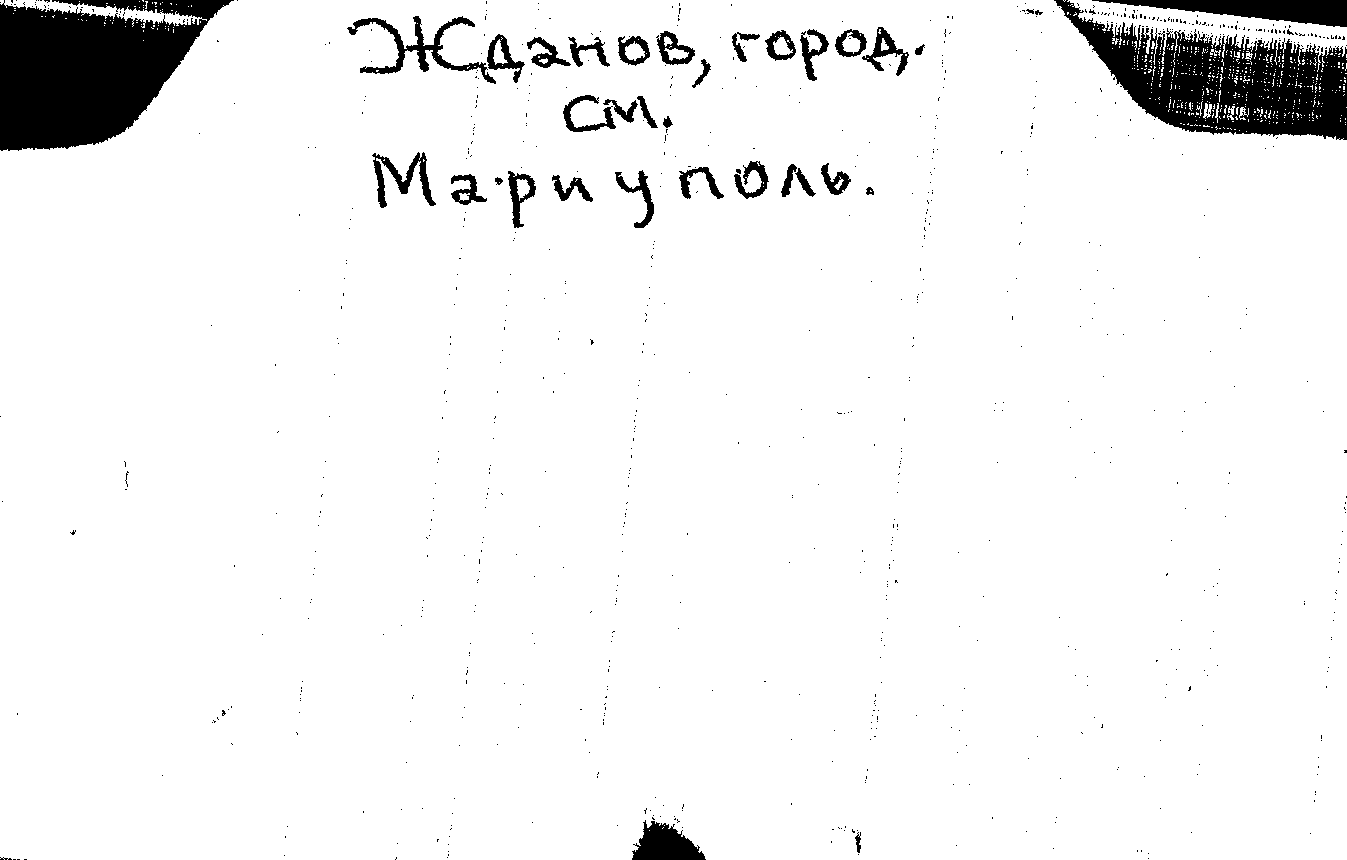 Жданов, город.
см.
Мариуполь.